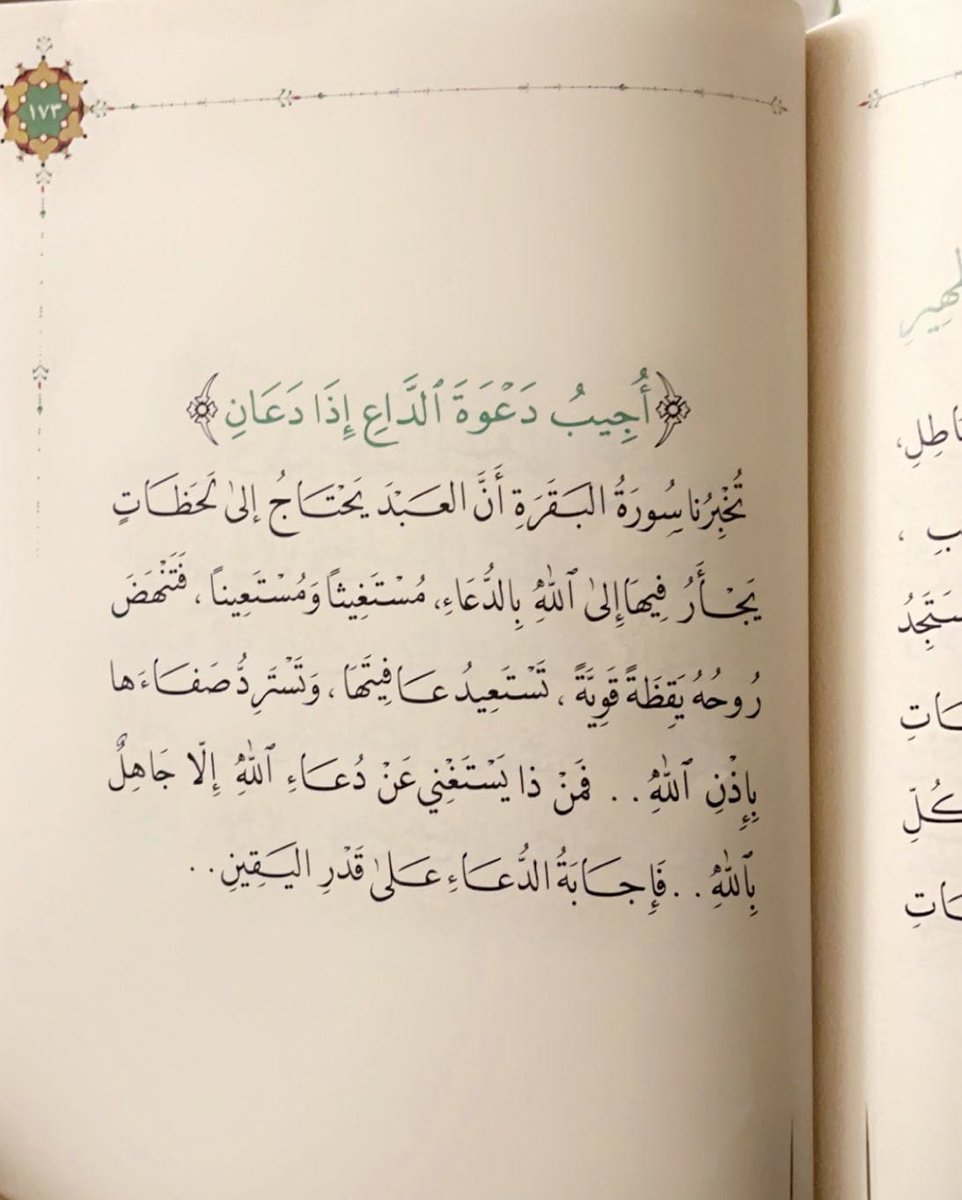 ١٧٣
﴿أُجِيبُ دَعْوَةَ ٱلدَّاعِ إِذَا دَعَانِ﴾
تُخْبِرُنا سُورَةُ البَقَرَةِ أَنَّ العَبْدَ يَحْتَاجُ إلىٰ لَحَظَاتٍ
يَجْأَرُ فِيهَا إِلىٰ ٱللهِ بِالدُّعَاءِ، مُسْتَغِيثاً وَمُسْتَعِيناً، فَتَنْهَضَ
رُوحُهُ يَقِظَةً قَوِيَّةً، تَسْتَعِيدُ عَافِيتَهَا، وَتَسْتَرِدُّ صَفَاءَها
بِإِذْنِ ٱللهِ.. فَمَنْ ذا يَسْتَغْنِي عَنْ دُعَاءِ ٱللهِ إِلّا جَاهِلٌ
بِٱللهِ.. فَإِجَابَةُ الدُّعَاءِ عَلىٰ قَدْرِ اليَقِينِ..